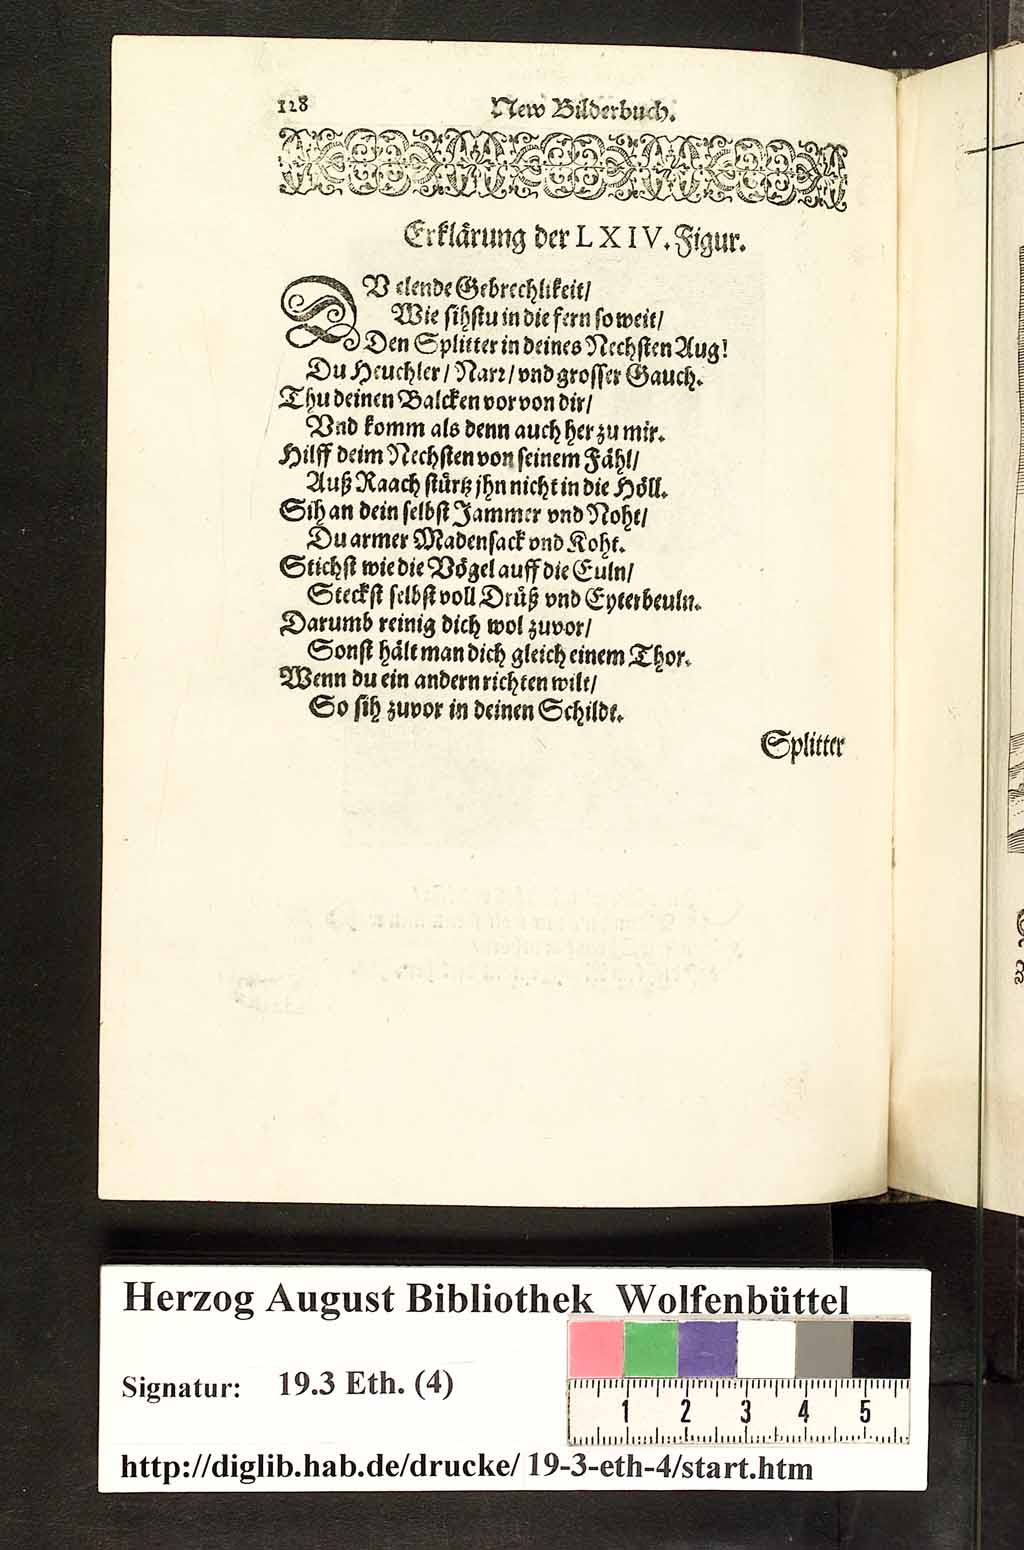 128
New Bilderbuch.
Erklärung der LXIV. Figur.
DV elende Gebrechlikeit/
Wie sihstu in die fern so weit/
Den Splitter in deines Nechsten Aug!
Du Heuchler/ Narr/ vnd grosser Gauch.
Thu deinen Balcken vor von dir/
Vnd komm als denn auch her zu mir.
Hilff deim Nechsten von seinem Fähl/
Auß Raach stürtz jhn nicht in die Höll.
Sih an dein selbst Jammer vnd Noht/
Du armer Madensack vnd Koht.
Stichst wie die Vögel auff die Euln/
Steckst selbst voll Drüß vnd Eyterbeuln.
Darumb reinig dich wol zuvor/
Sonst hält man dich gleich einem Thor.
Wenn du ein andern richten wilt/
So sih zuvor in deinen Schildt.
Splitter
Herzog August Bibliothek Wolfenbüttel
Signatur: 19.3 Eth. (4)
1 2 3 4 5
http://diglib.hab.de/drucke/ 19-3-eth-4/start.htm